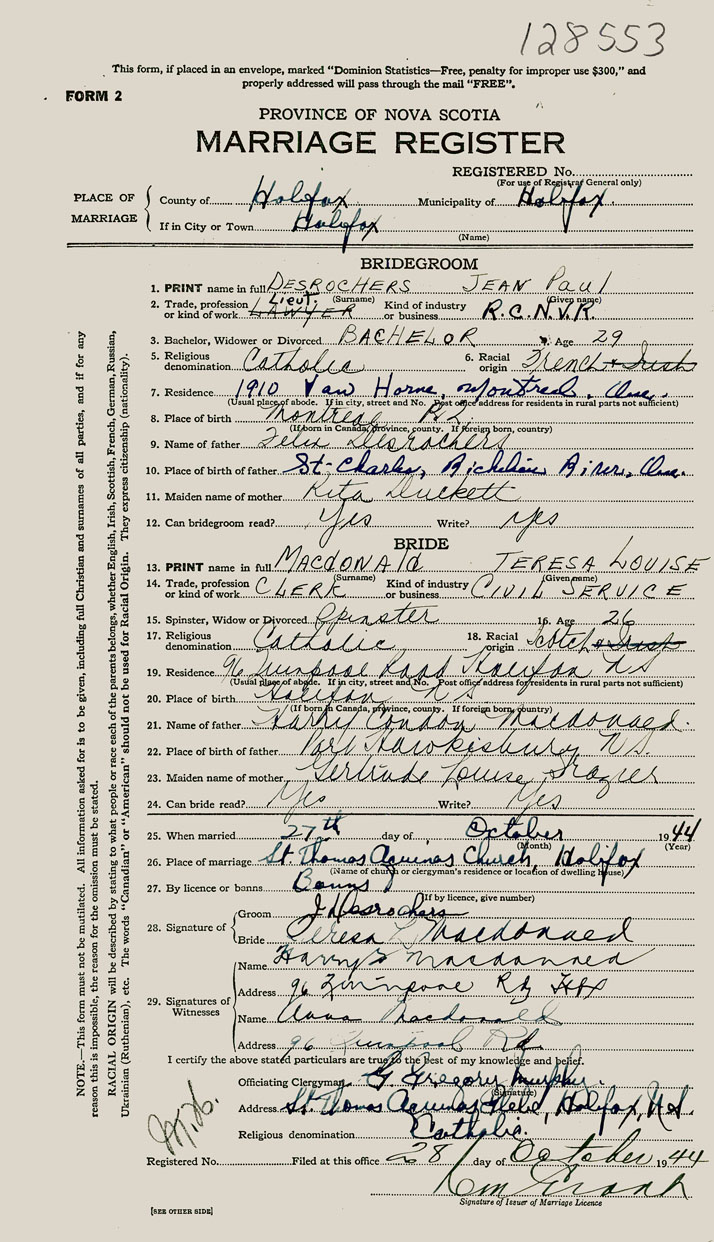 128553
This form, if placed in an envelope, marked "Dominion Statistics—Free, penalty for improper use $300," and
properly addressed will pass through the mail "FREE".
FORM 2
PROVINCE OF NOVA SCOTIA
MARRIAGE REGISTER
REGISTERED No.
(For use of Registrar General only)
PLACE OF MARRIAGE
County of Halifax Municipality of Halifax.
If in City or Town Halifax
(Name)
BRIDEGROOM
1. PRINT name in full DESROCHERS JEAN PAUL
(Surname) (Given name)
2. Trade, profession or kind of work Lieut. LAWYER Kind of industry or business R.C.N.V.R.
3. Bachelor, Widower or Divorced BACHELOR 4. Age 29
5. Religious denomination Catholic 6. Racial origin French & Irish
7. Residence 1910 Van Horne, Montreal, Que.
(Usual place of abode. If in city, street and No. Post office address for residents in rural parts not sufficient)
8. Place of birth Montreal P.Q.
(If born in Canada, province, county. If foreign born, country)
9. Name of father Felix Desrochers
10. Place of birth of father St-Charles, Richelieu River, Que.
11. Maiden name of mother Rita Duckett
12. Can bridegroom read? Yes Write? Yes
BRIDE
13. PRINT name in full MACDONALD TERESA LOUISE
(Surname) (Given name)
14. Trade, profession or kind of work CLERK Kind of industry or business CIVIL SERVICE
15. Spinster, Widow or Divorced Spinster 16. Age 26
17. Religious denomination Catholic 18. Racial origin Scotch & Irish
19. Residence 96 Quinpool Road Halifax N S
(Usual place of abode. If in city, street and No. Post office address for residents in rural parts not sufficient)
20. Place of birth Halifax N S
(If born in Canada, province, county. If foreign born, country)
21. Name of father Harry Condon Macdonald.
22. Place of birth of father Port Hawkesbury N.S.
23. Maiden name of mother Gertrude Louise Frazier
24. Can bride read? Yes Write? Yes
25. When married 27th day of October 1944
(Month) (Year)
26. Place of marriage St. Thomas Aquinas Church, Halifax
(Name of church or clergyman's residence or location of dwelling house)
27. By licence or banns Banns
(If by licence, give number)
28. Signature of
Groom J Desrochers
Bride Teresa L Macdonald
29. Signatures of Witnesses
Name Harry Macdonald
Address 96 Quinpool Rd Hfx
Name Anna Macdonald
Address 96 Quinpool Rd.
I certify the above stated particulars are true to the best of my knowledge and belief.
Officiating Clergyman G Gregory Murphy.
(Signature)
Address St. Thomas Aquinas Halifax, N.S.
Religious denomination Catholic.
Registered No. Filed at this office 28 day of October 1944
Signature of Issuer of Marriage Licence
[SEE OTHER SIDE]
NOTE.—This form must not be mutilated. All information asked for is to be given, including full Christian and surnames of all parties, and if for any
reason this is impossible, the reason for the omission must be stated.
RACIAL ORIGIN will be described by stating to what people or race each of the parents belongs, whether English, Irish, Scottish, French, German, Russian,
Ukrainian (Ruthenian), etc. The words "Canadian" or "American" should not be used for Racial Origin. They express citizenship (nationality).